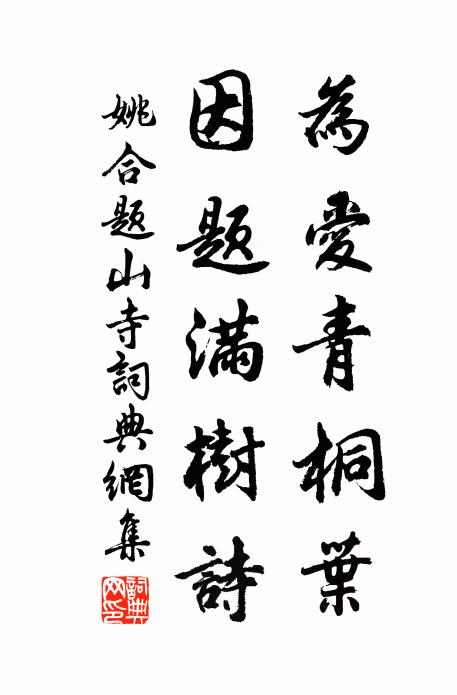 為愛青桐葉
因题滿樹詩
姚合题山寺詞典網集
詞典網印